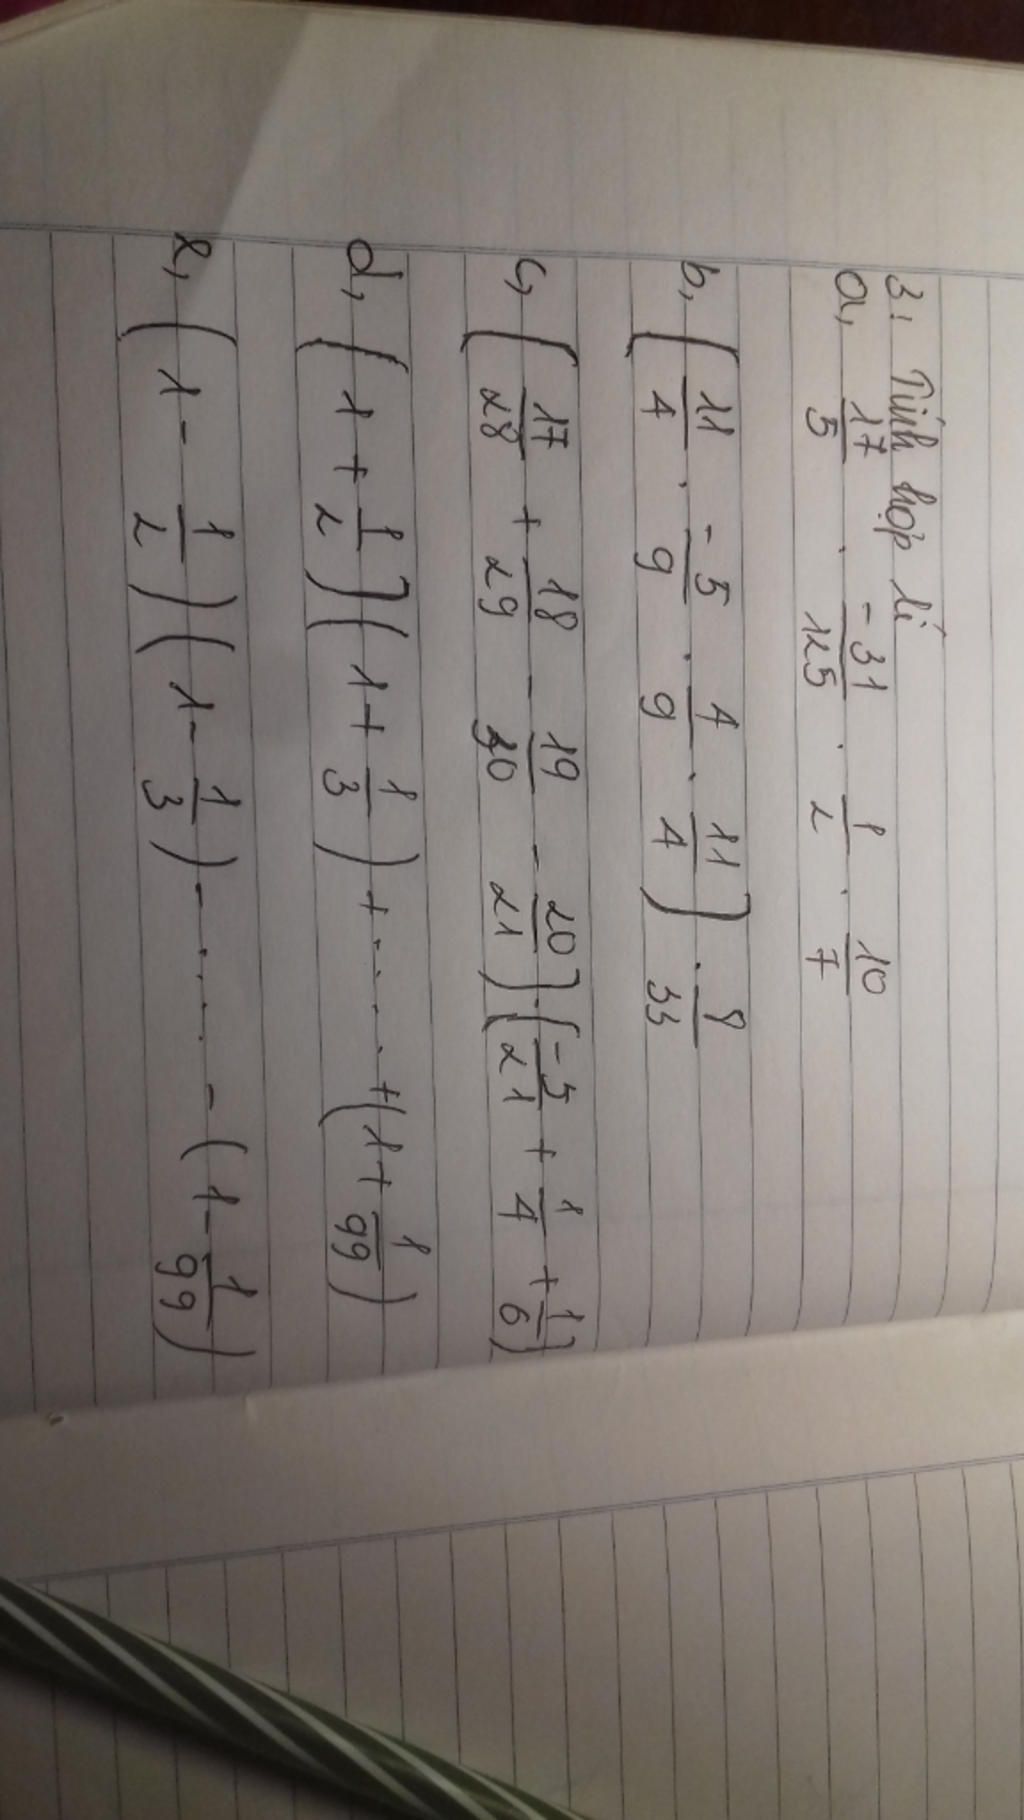 3, Tính hợp lí
a, 17/5 . -31/125 . 1/2 . 10/7
b, (11/4 . -5/9 . 4/9 . 11/4) . 8/33
c, (17/28 + 18/29 - 19/30 - 20/21) . (-5/21 + 1/4 + 1/6)
d, (1 + 1/2)(1 + 1/3) + ..... + (1 + 1/99)
e, (1 - 1/2)(1 - 1/3) - ..... - (1 - 1/99)